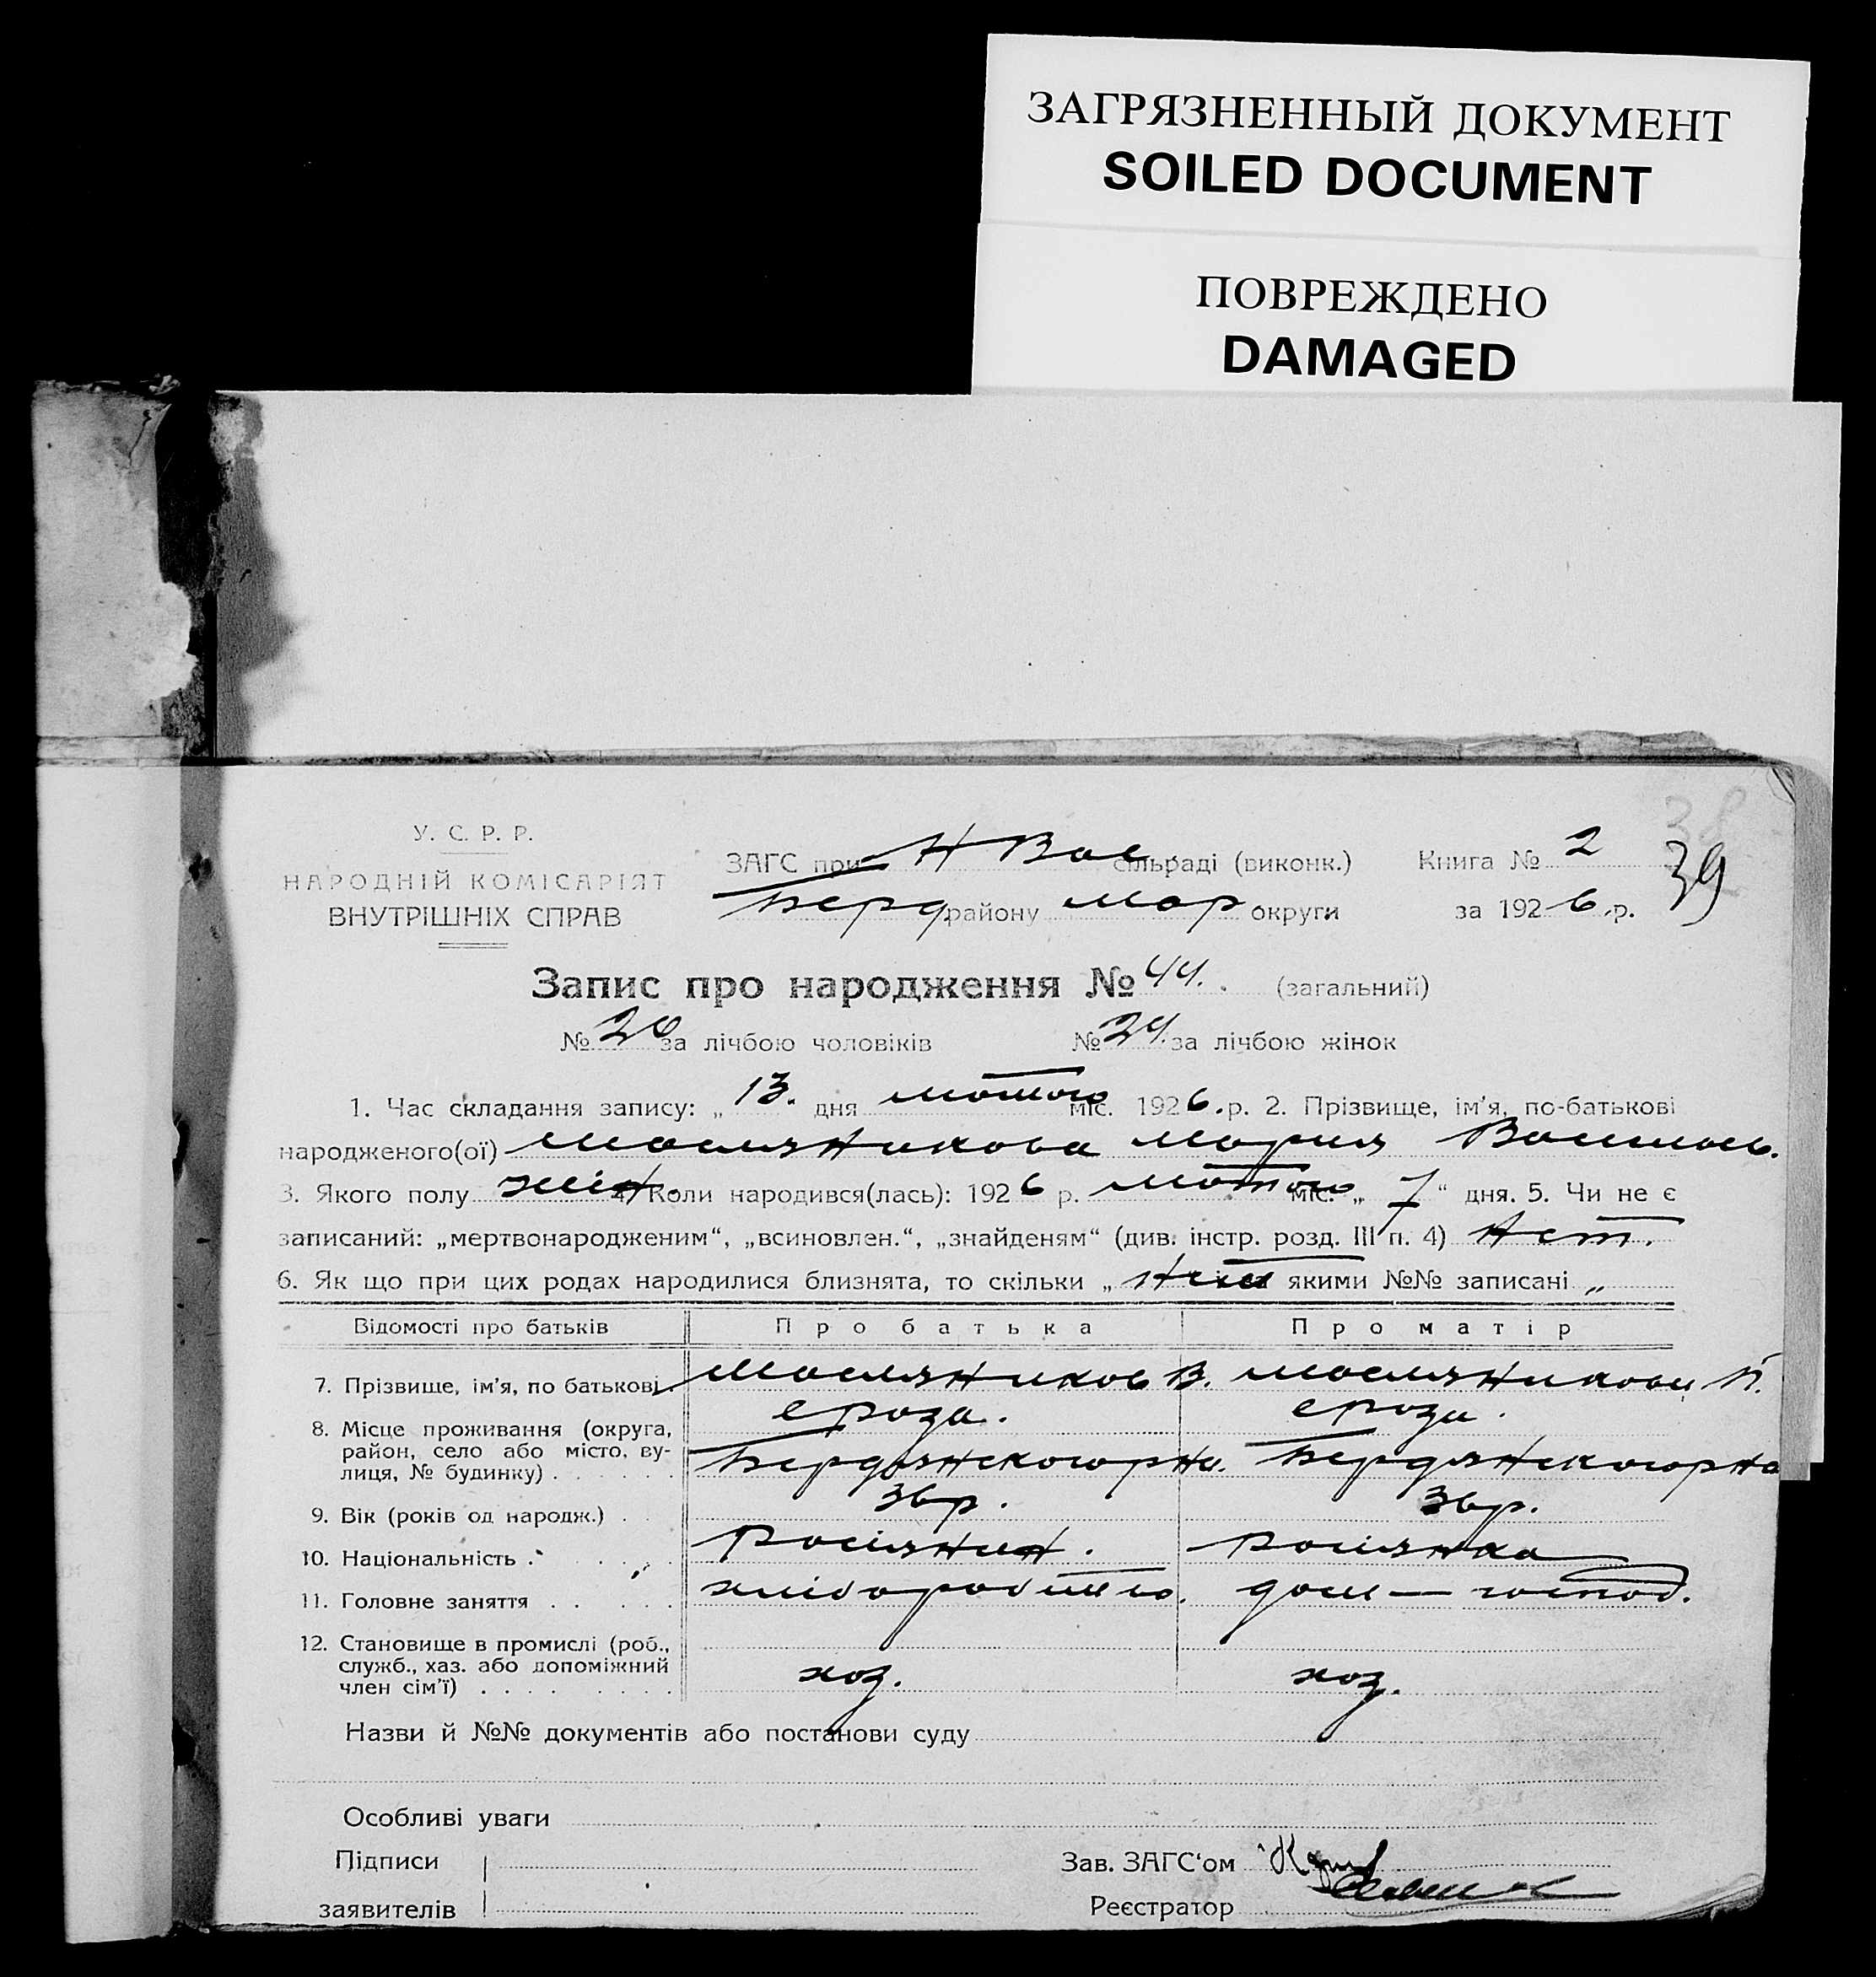 ЗАГРЯЗНЕННЫЙ ДОКУМЕНТ
SOILED DOCUMENT
ПОВРЕЖДЕНО
DAMAGED
У. С. Р. Р.
НАРОДНІЙ КОМІСАРІЯТ
ВНУТРІШНІХ СПРАВ
ЗАГС при Н Вас сільраді (виконк.)
Берд району Мар округи
Книга № 2
за 1926 р.
39
Запис про народження № 44. (загальний)
№ 20 за лічбою чоловіків № 24. за лічбою жінок
1. Час складання запису: „13." дня лютого міс. 1926. р. 2. Прізвище, ім'я, по-батькові
народженого(ої) Маслянікова Мария Василь.
3. Якого полу жін. 4. Коли народився(лась): 1926 р. лютого міс. „7" дня. 5. Чи не є
записаний: „мертвонародженим", „всиновлен.", „знайденям" (див. інстр. розд. III п. 4) Нет.
6. Як що при цих родах народилися близнята, то скільки „ якими №№ записані „
Відомості про батьків Про батька Про матір
7. Прізвище, ім'я, по батькові. Масляников В. Масляникова П.
8. Місце проживання (округа, район, село або місто, вулиця, № будинку) Бердянского рна. Бердянского рна
9. Вік (років од народж.) 36р. 36р.
10. Національність росіянин. росіянка
11. Головне заняття хліборобство. дом — господ.
12. Становище в промислі (роб., служб., хаз. або допоміжний член сім'ї) хоз. хоз.
Назви й №№ документів або постанови суду
Особливі уваги
Підписи
заявителів
Зав. ЗАГС'ом
Реєстратор